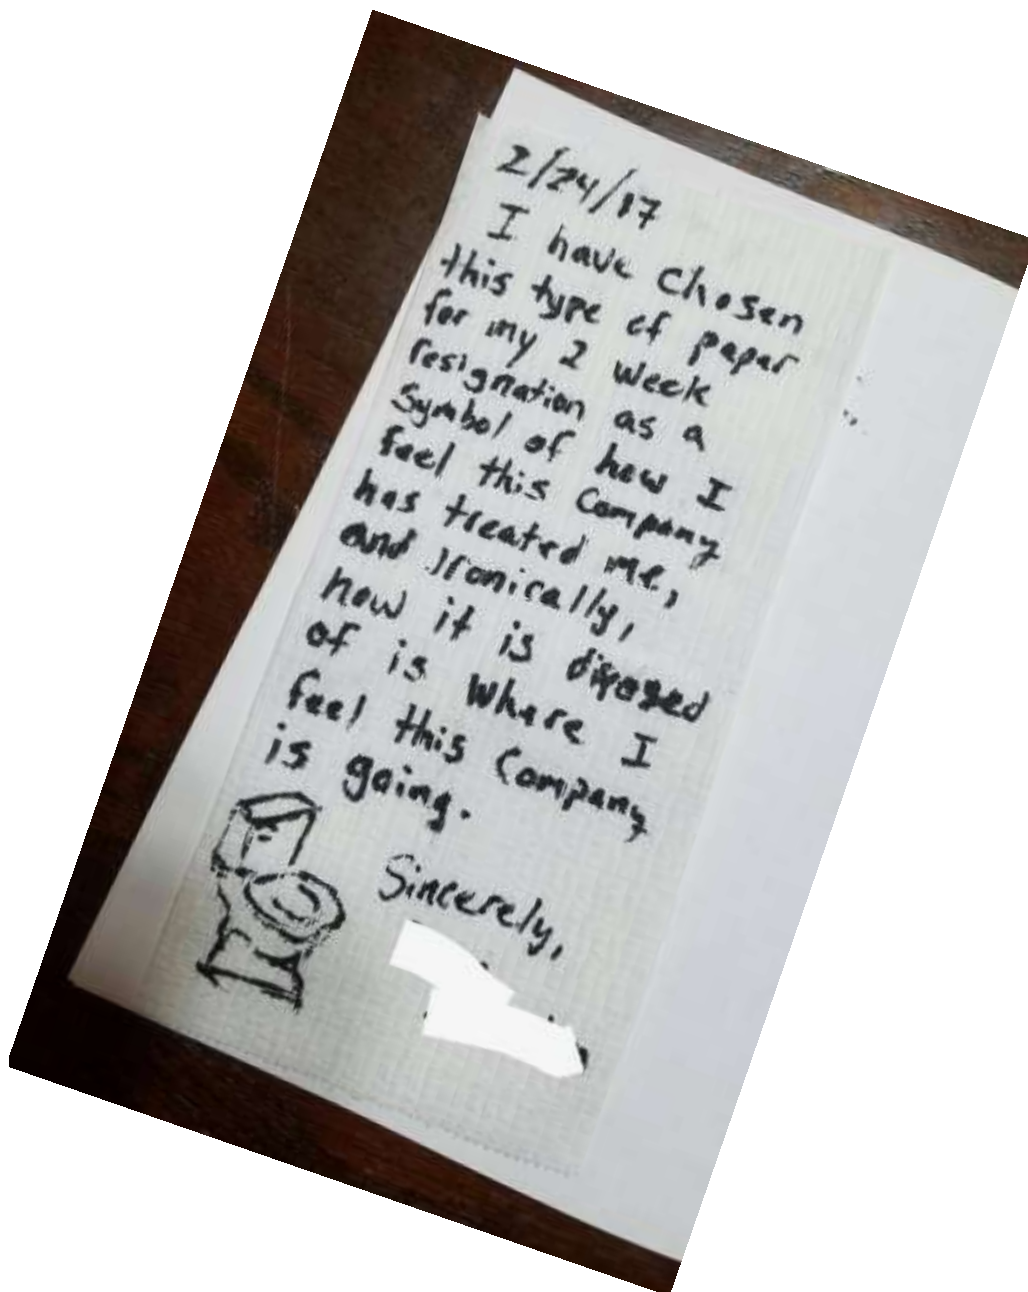 2/24/17
I have chosen
this type of paper
for my 2 week
resignation as a
symbol of how I
feel this company
has treated me,
and Ironically,
how it is disposed
of is where I
feel this company
is going.
Sincerely,